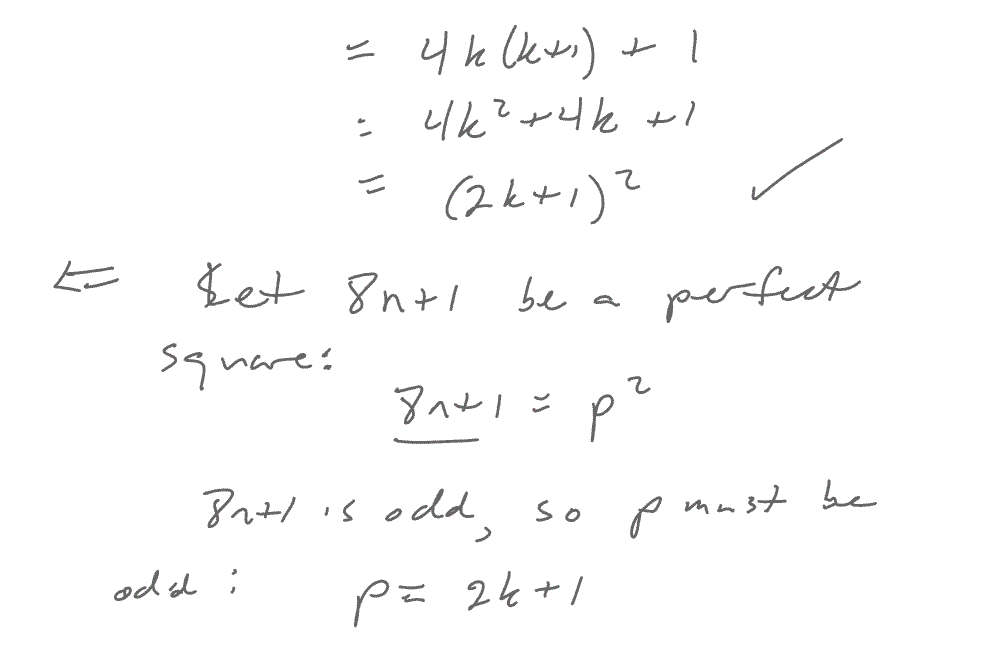 = 4k(k+1) + 1
= 4k² + 4k + 1
= (2k+1)² ✓
⇐ Let 8n+1 be a perfect
square:
8n+1 = p²
8n+1 is odd, so p must be
odd: p = 2k+1